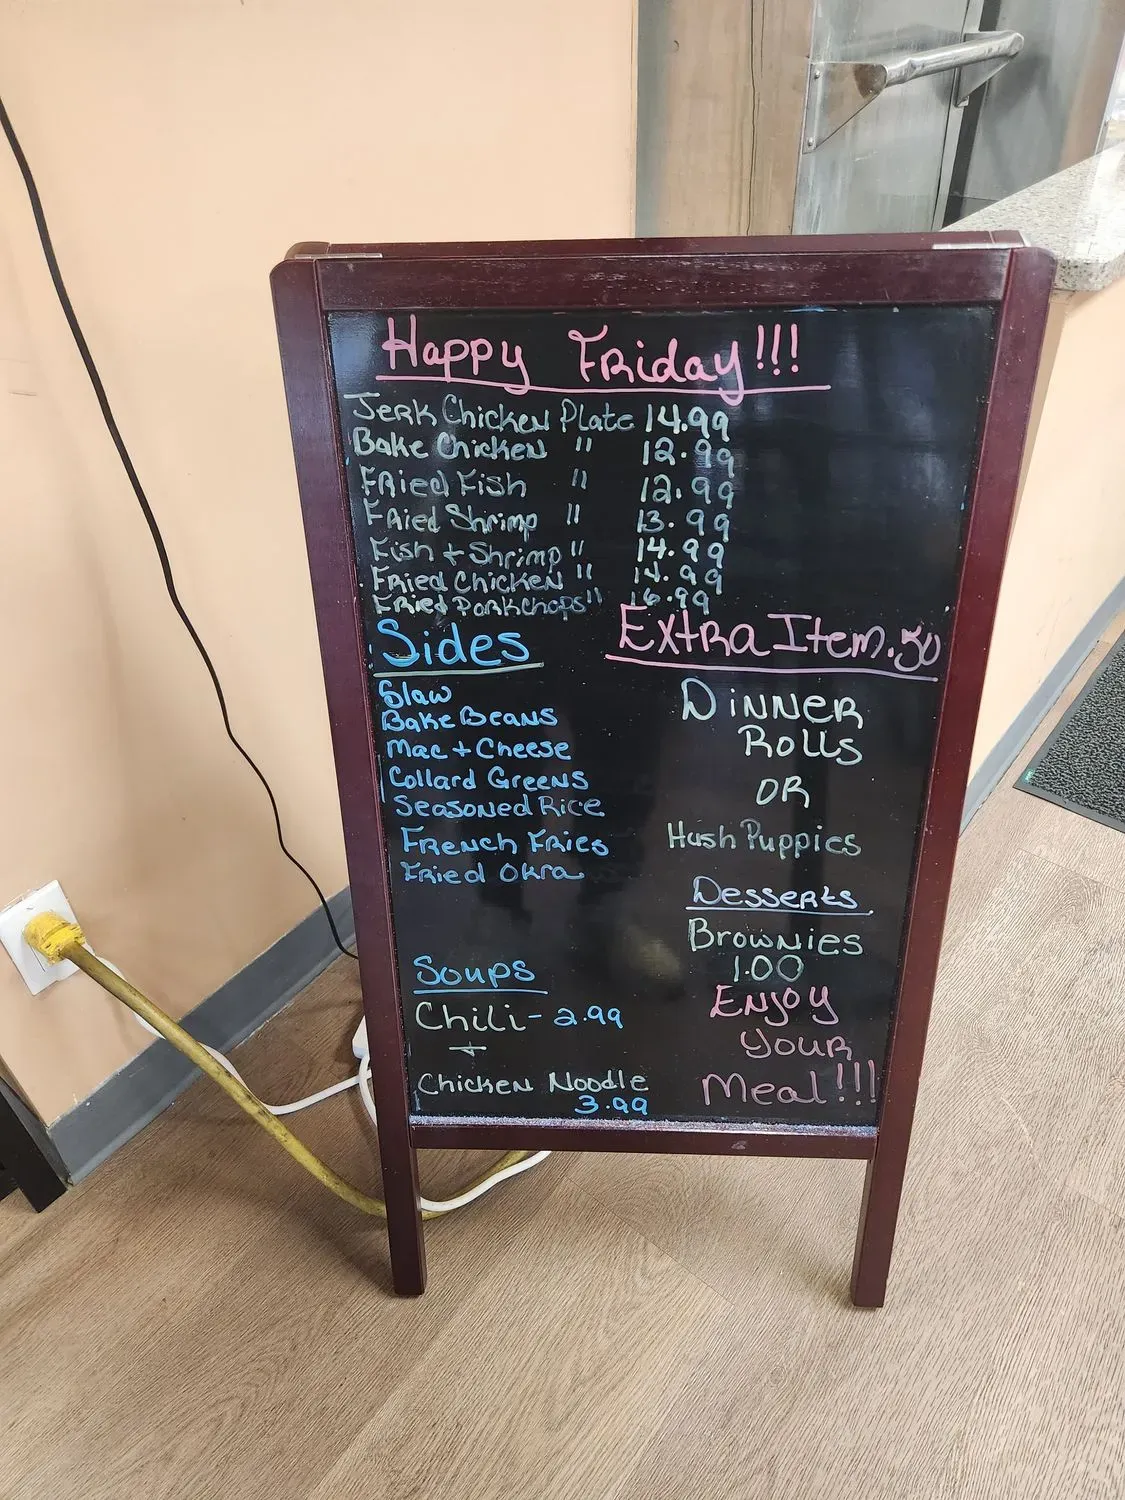 Happy Friday!!!
Jerk Chicken Plate 14.99
Bake Chicken " 12.99
Fried Fish " 12.99
Fried Shrimp " 13.99
Fish + Shrimp " 14.99
Fried Chicken " 14.99
Fried Porkchops " 16.99
Sides
Slaw
Bake Beans
Mac + Cheese
Collard Greens
Seasoned Rice
French Fries
Fried Okra
Soups
Chili - 2.99
+
Chicken Noodle
3.99
Extra Item .50
Dinner
Rolls
or
Hush Puppies
Desserts
Brownies
1.00
Enjoy
Your
Meal!!!